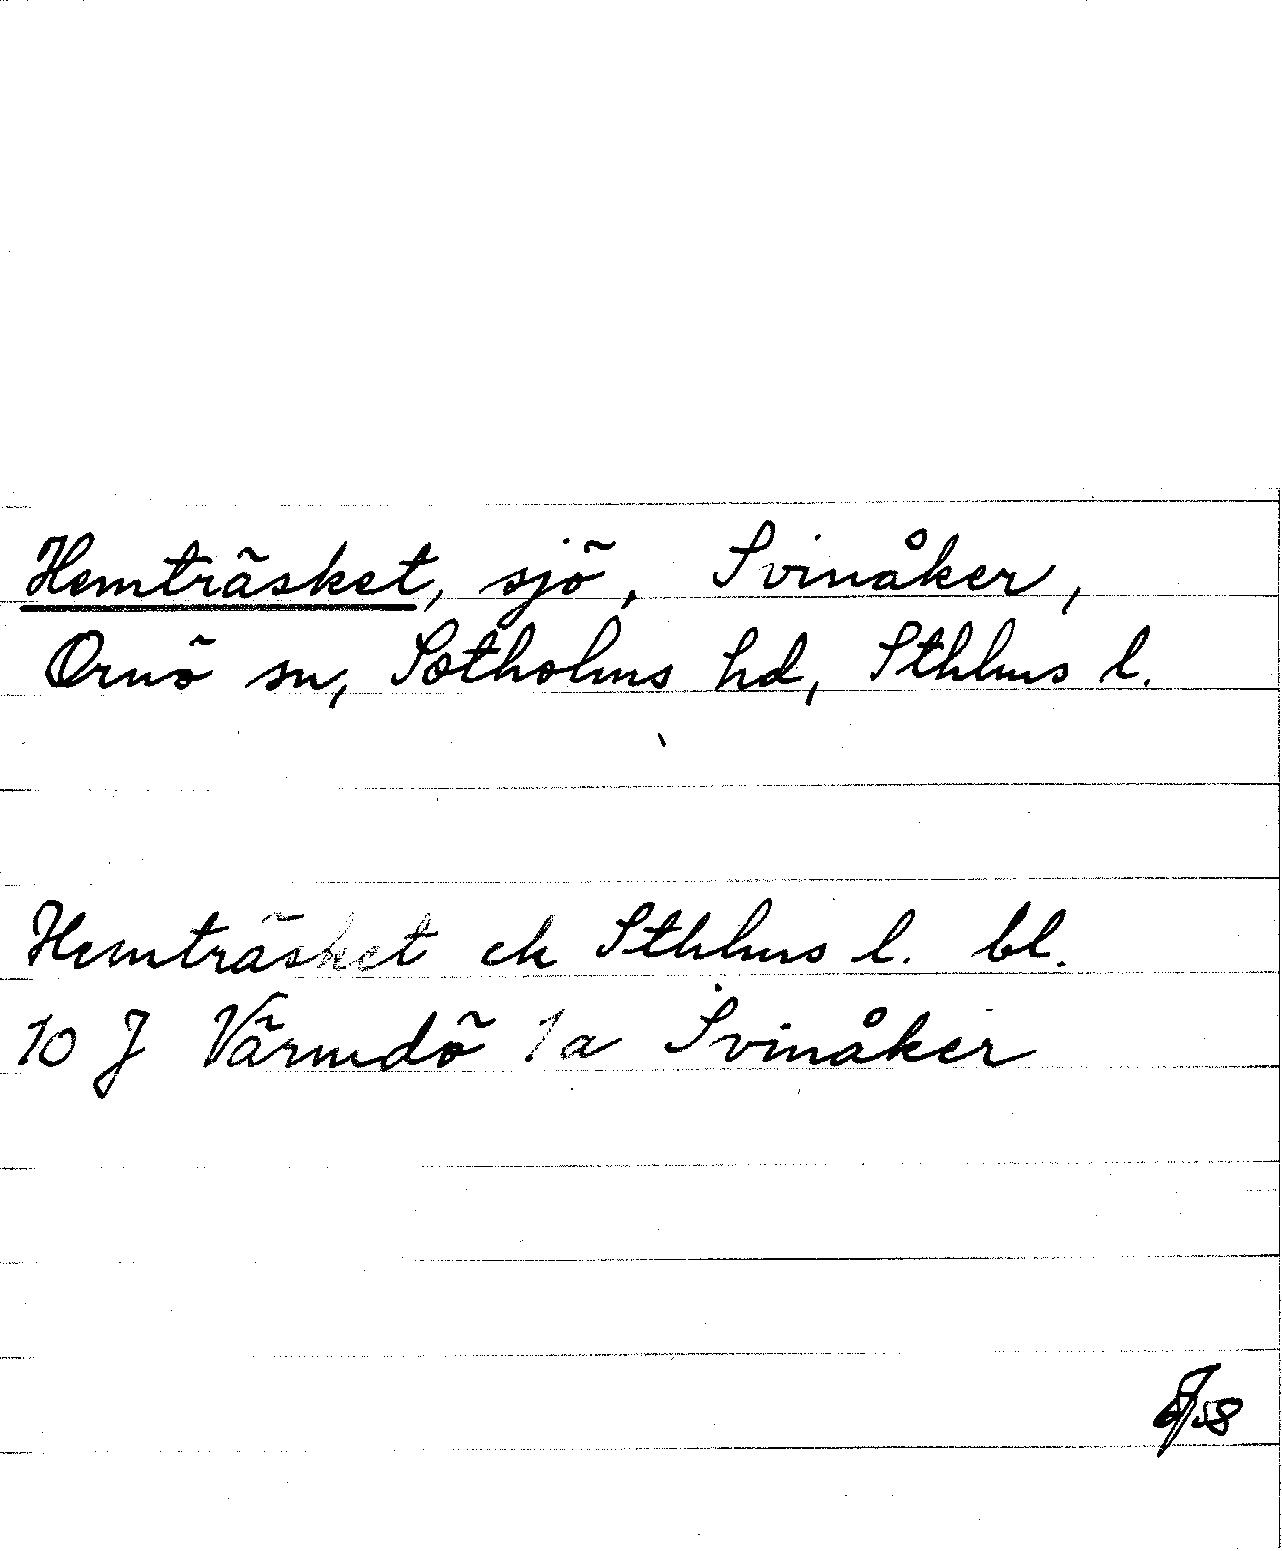 Hemträsket, sjö, Svinåker,
Ornö sn, Sotholms hd, Sthlms l.
Hemträsket ek Sthlms l. bl.
10 J Värmdö 1a Svinåker
58